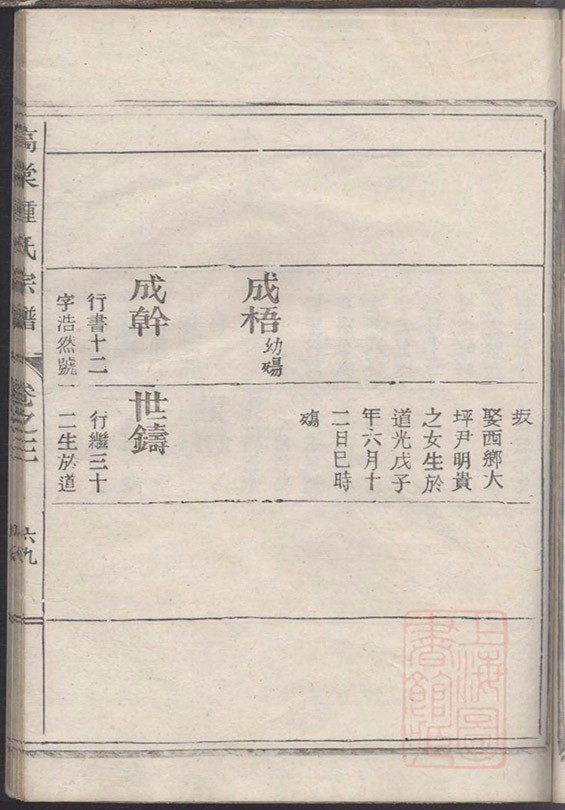 成梧
幼殤
成幹
行書十二
字浩然號
坂
娶西鄉大
坪尹明貴
之女生於
道光戊子
年六月十
二日巳時
殤
世鑄
行繼三十
二生於道
氏宗譜
卷之三
六九
上海圖
書館藏